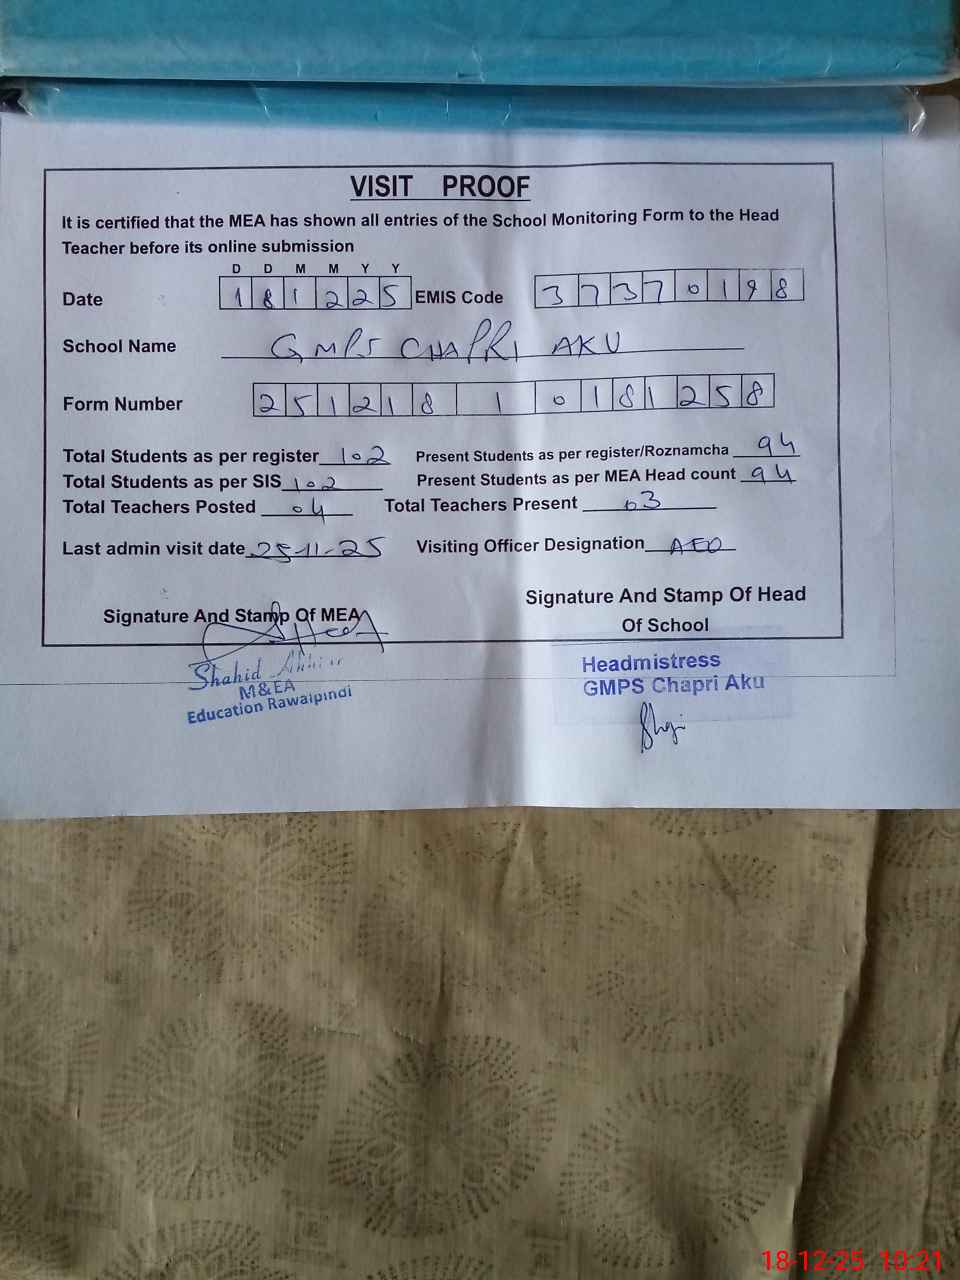 VISIT PROOF
It is certified that the MEA has shown all entries of the School Monitoring Form to the Head
Teacher before its online submission
D D M M Y Y
Date 181225 EMIS Code 37370198
School Name GMPS CHAPRI AKU
Form Number 251218 1 0181258
Total Students as per register 102 Present Students as per register/Roznamcha 94
Total Students as per SIS 102 Present Students as per MEA Head count 94
Total Teachers Posted 04 Total Teachers Present 03
Last admin visit date 25-11-25 Visiting Officer Designation AEO
Signature And Stamp Of MEA
Signature And Stamp Of Head
Of School
Shahid
M&EA
Education Rawalpindi
Headmistress
GMPS Chapri Aku
18-12-25 10:21